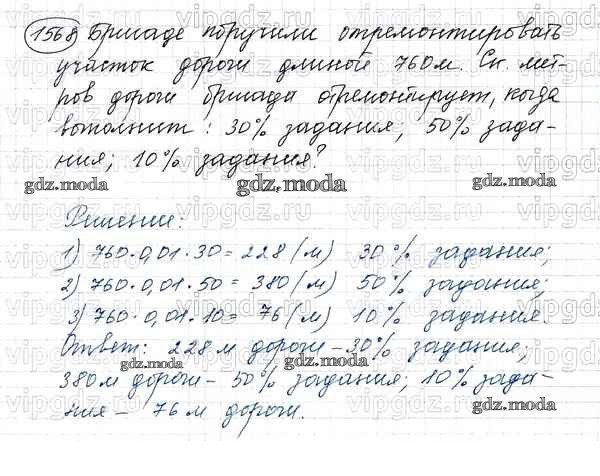 1568 Бригаде поручили отремонтировать
участок дороги длиной 760м. Ск. мет-
ров дороги бригада отремонтирует, когда
выполнит: 30% задания; 50% зада-
ния; 10% задания?
gdz.moda gdz.moda gdz.moda
Решение:
1) 760·0,01·30=228(м) 30% задания;
2) 760·0,01·50=380(м) 50% задания;
3) 760·0,01·10=76(м) 10% задания.
Ответ: 228м дороги-30% задания;
gdz.moda gdz.moda gdz.moda
380м дороги- 50% задания; 10% зада-
ния- 76м дороги.
gdz.moda
vipgdz.ru